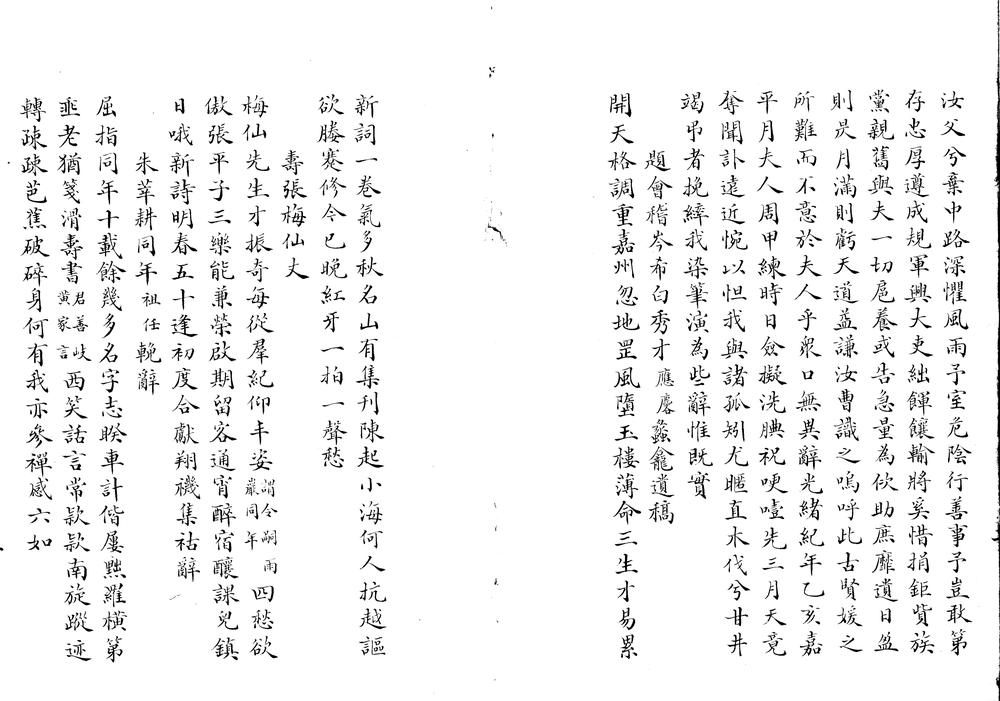 汝父兮棄中路深懼風雨予室危陰行善事予豈敢第
存忠厚遵成規軍興大吏絀餫饟輸將奚惜捐鉅貲族
黨親舊與夫一切扈養或告急量為佽助庶靡遺日盈
則昃月滿則虧天道益謙汝曹識之嗚呼此古賢媛之
所難而不意於夫人乎衆口無異辭光緒紀年乙亥嘉
平月夫人周甲練時日僉擬洗腆祝哽噎先三月天竟
奪聞訃遠近惋以怛我與諸孤矧尤暱直木伐兮甘井
竭弔者挽綍我染筆演為些辭惟既實
題會稽岑希白秀才應麐蠡龕遺稿
開天格調重嘉州忽地罡風墮玉樓薄命三生才易累
新詞一卷氣多秋名山有集刊陳起小海何人抗越謳
欲媵蹇修今已晚紅牙一拍一聲愁
壽張梅仙丈
梅仙先生才振奇每從羣紀仰丰姿謂令嗣雨巖同年四愁欲
傲張平子三樂能兼榮啟期留客通宵醉宿釀課兒鎮
日哦新詩明春五十逢初度合獻翔禨集祜辭
朱莘耕同年祖任輓辭
屈指同年十載餘幾多名字志睽車計偕屢黜羅橫第
亟老猶箋滑壽書君善岐黄家言西笑話言常款款南旋蹤迹
轉疎疎芭蕉破碎身何有我亦參禪感六如